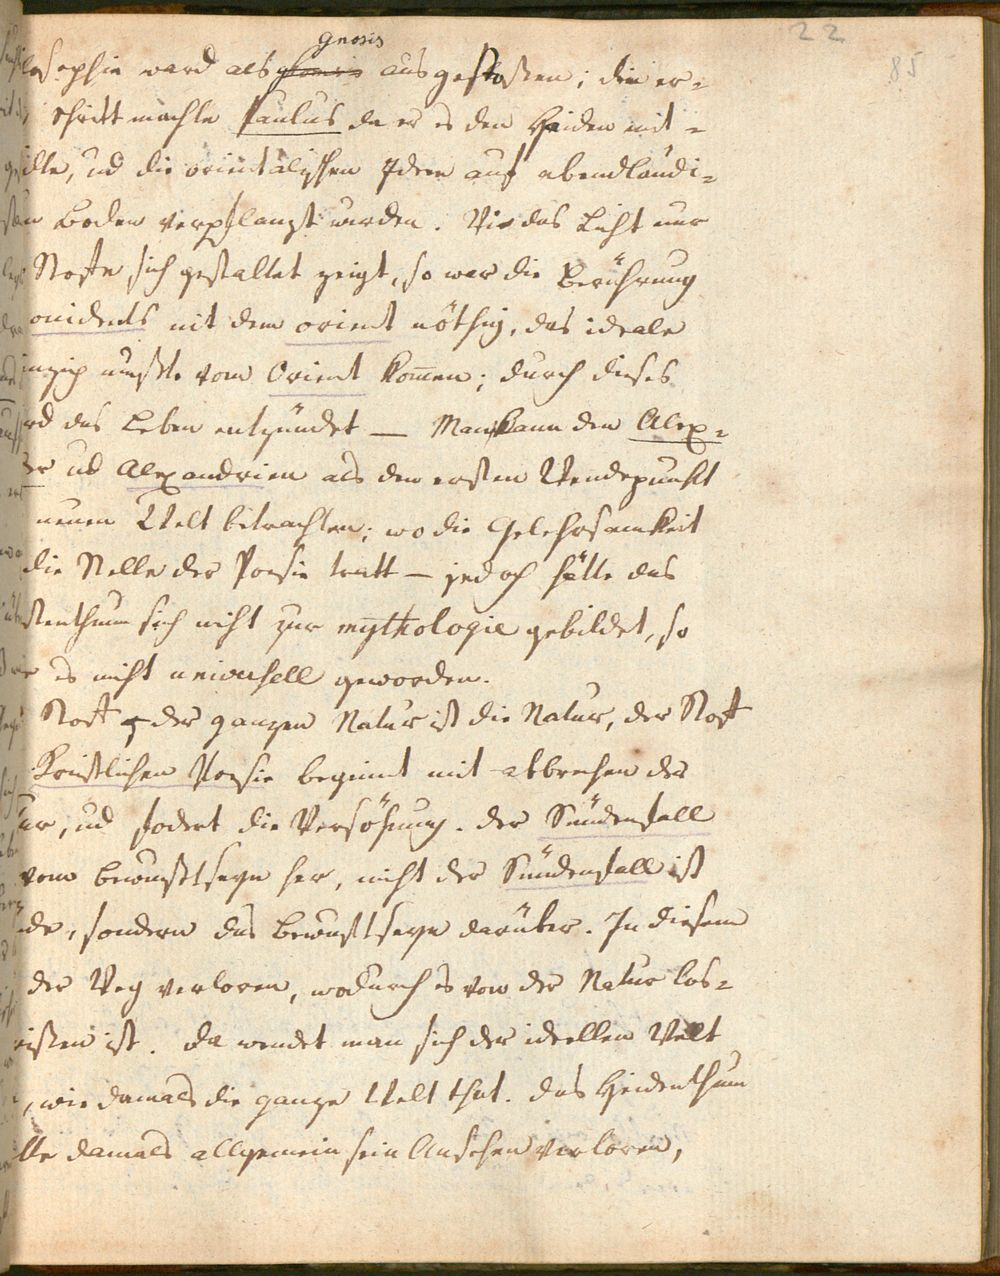 22
85
Gnosis
losophie ward als ausgestoßen; den er-
Schritt machte Paulus da er es den Heiden mit-
eilte, ud die orientalischen Ideen auf abendländi-
en Boden verpflanzt wurden. Wie das Licht nur
Stoffe sich gestaltet zeigt, so war die Berührung
occidents mit dem orient nöthig, das ideale
inzip mußte vom Orient kom̄en; durch dieses
rd das Leben entzündet — Man kann den Alex-
er ud Alexandrien als den ersten Wendepunkt
neuen Welt betrachten; wo die Gelehrsamkeit
die Stelle der Poesie tratt — jedoch hätte das
stenthum sich nicht zur mythologie gebildet, so
re es nicht universell geworden.
Stoff der ganzen Natur ist die Natur, der Stoff
Kristlichen Poesie beginnt mit abbrechen der
ur, ud fodert die Versöhnung. der Sündenfall
vom bewußtseyn her, nicht der Sündenfall ist
de, sondern das bewußtseyn darüber. In diesem
der Weg verloren, wodurch es von der Natur los-
rißen ist. Da wendet man sich der ideellen Welt
, wie damals die ganze Welt that. das Heidenthum
tte damals allgemein sein Ansehen verloren,